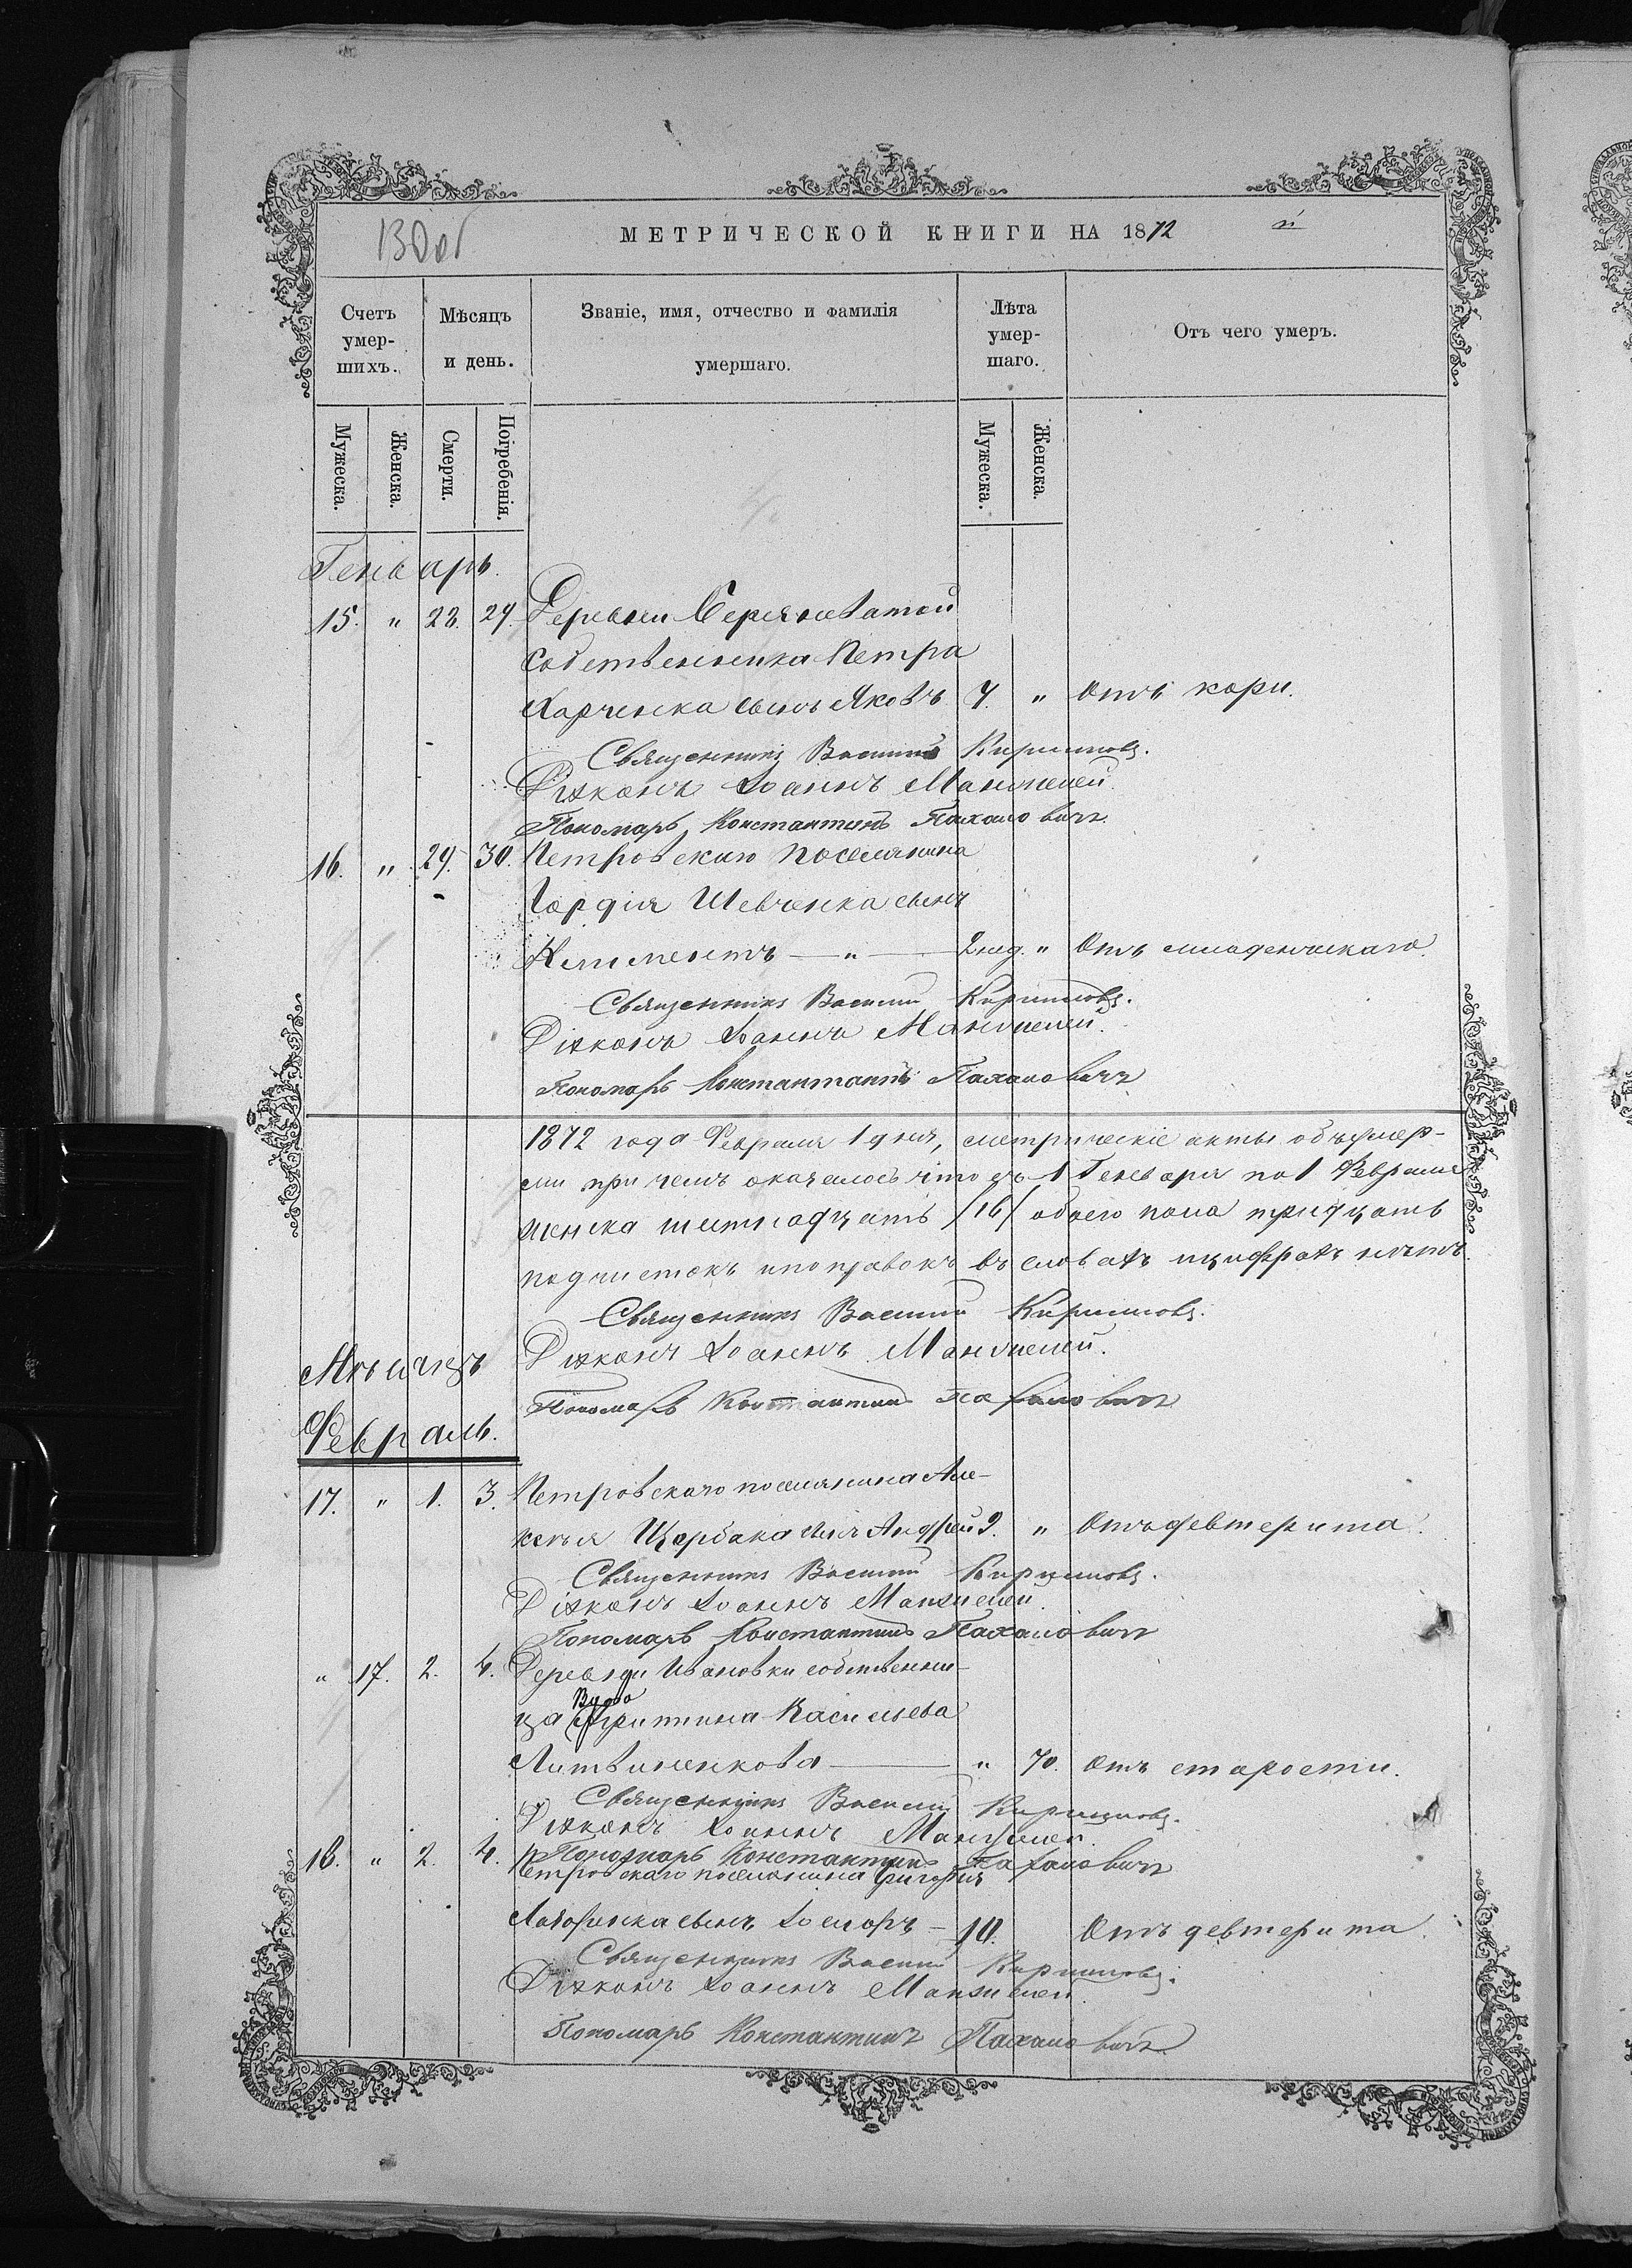 130 об
МЕТРИЧЕСКОЙ КНИГИ НА 1872
Счетъ умер-шихъ.
Мѣсяцъ и день.
Званіе, имя, отчество и фамилія умершаго.
Лѣта умер-шаго.
Отъ чего умеръ.
Мужеска. Женска. Смерти. Погребенія. Мужеска. Женска.
Генварь.
15. " 23. 24. Деревни
собственника Петра
Харченка сынъ Яковъ 7. " Отъ кори.
Священникъ Василій Кирилловъ.
Діаконъ Іоаннъ Манжелей.
Пономарь Константинъ Пахаловичъ.
16. " 29. 30. Петровскаго поселянина
Гордія Шевченка сынъ
Климентъ — " — 2 нед. " Отъ младенческаго.
Священникъ Василій Кирилловъ.
Діаконъ Іоаннъ Манжелей.
Пономарь Константинъ Пахаловичъ
1872 года Февраля 1 дня, метрическіе акты объ умер-
ли при чемъ оказалось что съ 1 Генваря по 1 Февраля
женска шестнадцать /16/ обоего пола тридцать
подчистокъ и поправокъ въ словахъ и цифрахъ нѣтъ.
Священникъ Василій Кирилловъ.
Діаконъ Іоаннъ Манжелей.
Пономарь Константинъ Пахаловичъ
Мѣсяцъ
Февраль.
17. " 1. 3. Петровскаго поселянина Але-
ксѣя Щербака сынъ Андрей 9. " Отъ девтерита.
Священникъ Василій Кирилловъ.
Діаконъ Іоаннъ Манжелей.
Пономарь Константинъ Пахаловичъ
" 17. 2. 4. Деревни Ивановки собственни-
Вдова
ца Агрипина Васильева
Литвиненкова — " 70. Отъ старости.
Священникъ Василій Кирилловъ.
Діаконъ Іоаннъ Манжелей.
Пономарь Константинъ Пахаловичъ
18. " 2. 4. Петровскаго поселянина Григорія
сынъ 10. Отъ девтерита.
Священникъ Василій Кирилловъ.
Діаконъ Іоаннъ Манжелей.
Пономарь Константинъ Пахаловичъ.